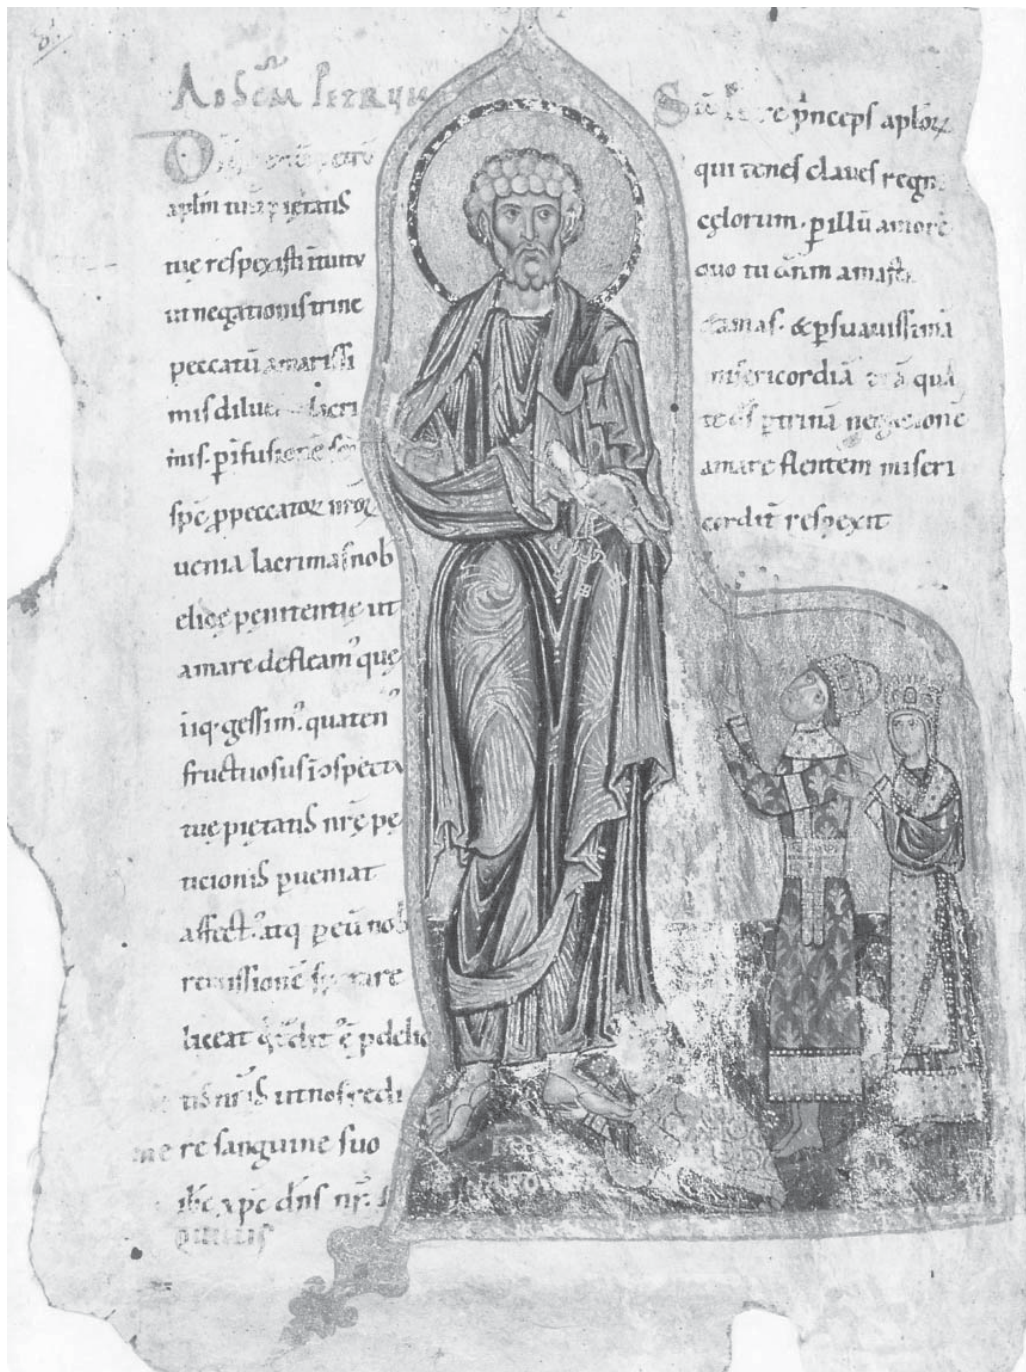 AD SCM PETRUM
aplm tuũ pietatis
tuę respexisti ītuitu
ut negationis trine
peccatũ amarissi
mis lacri
mis. ꝑ ifusionē
spē ꝓ peccatoꝝ nr̄oꝝ
uenia lacrimas nob
elice penitentię ut
amare defleamꝰ quę
iniq. gessimꝰ. quatenꝰ
fructuosus ī ɔspectu
tuę pietatis nrę pe
ticionis ꝑueniat
affectꝰ. atq ꝑ eū nob
remissionē
liceat
nris ut nos redi
me re sanguine suo
ihc xpc dns nr̄.
pnceps aploꝝ
qui tenes claues regni
cęlorum. ꝑ illū amorē
quo tu dn̄m amasti
& amas. & ꝑ suauissimā
misericordiā quā
te ds ꝑ trinā negationē
amare flentem miseri
cordit̄ respexit